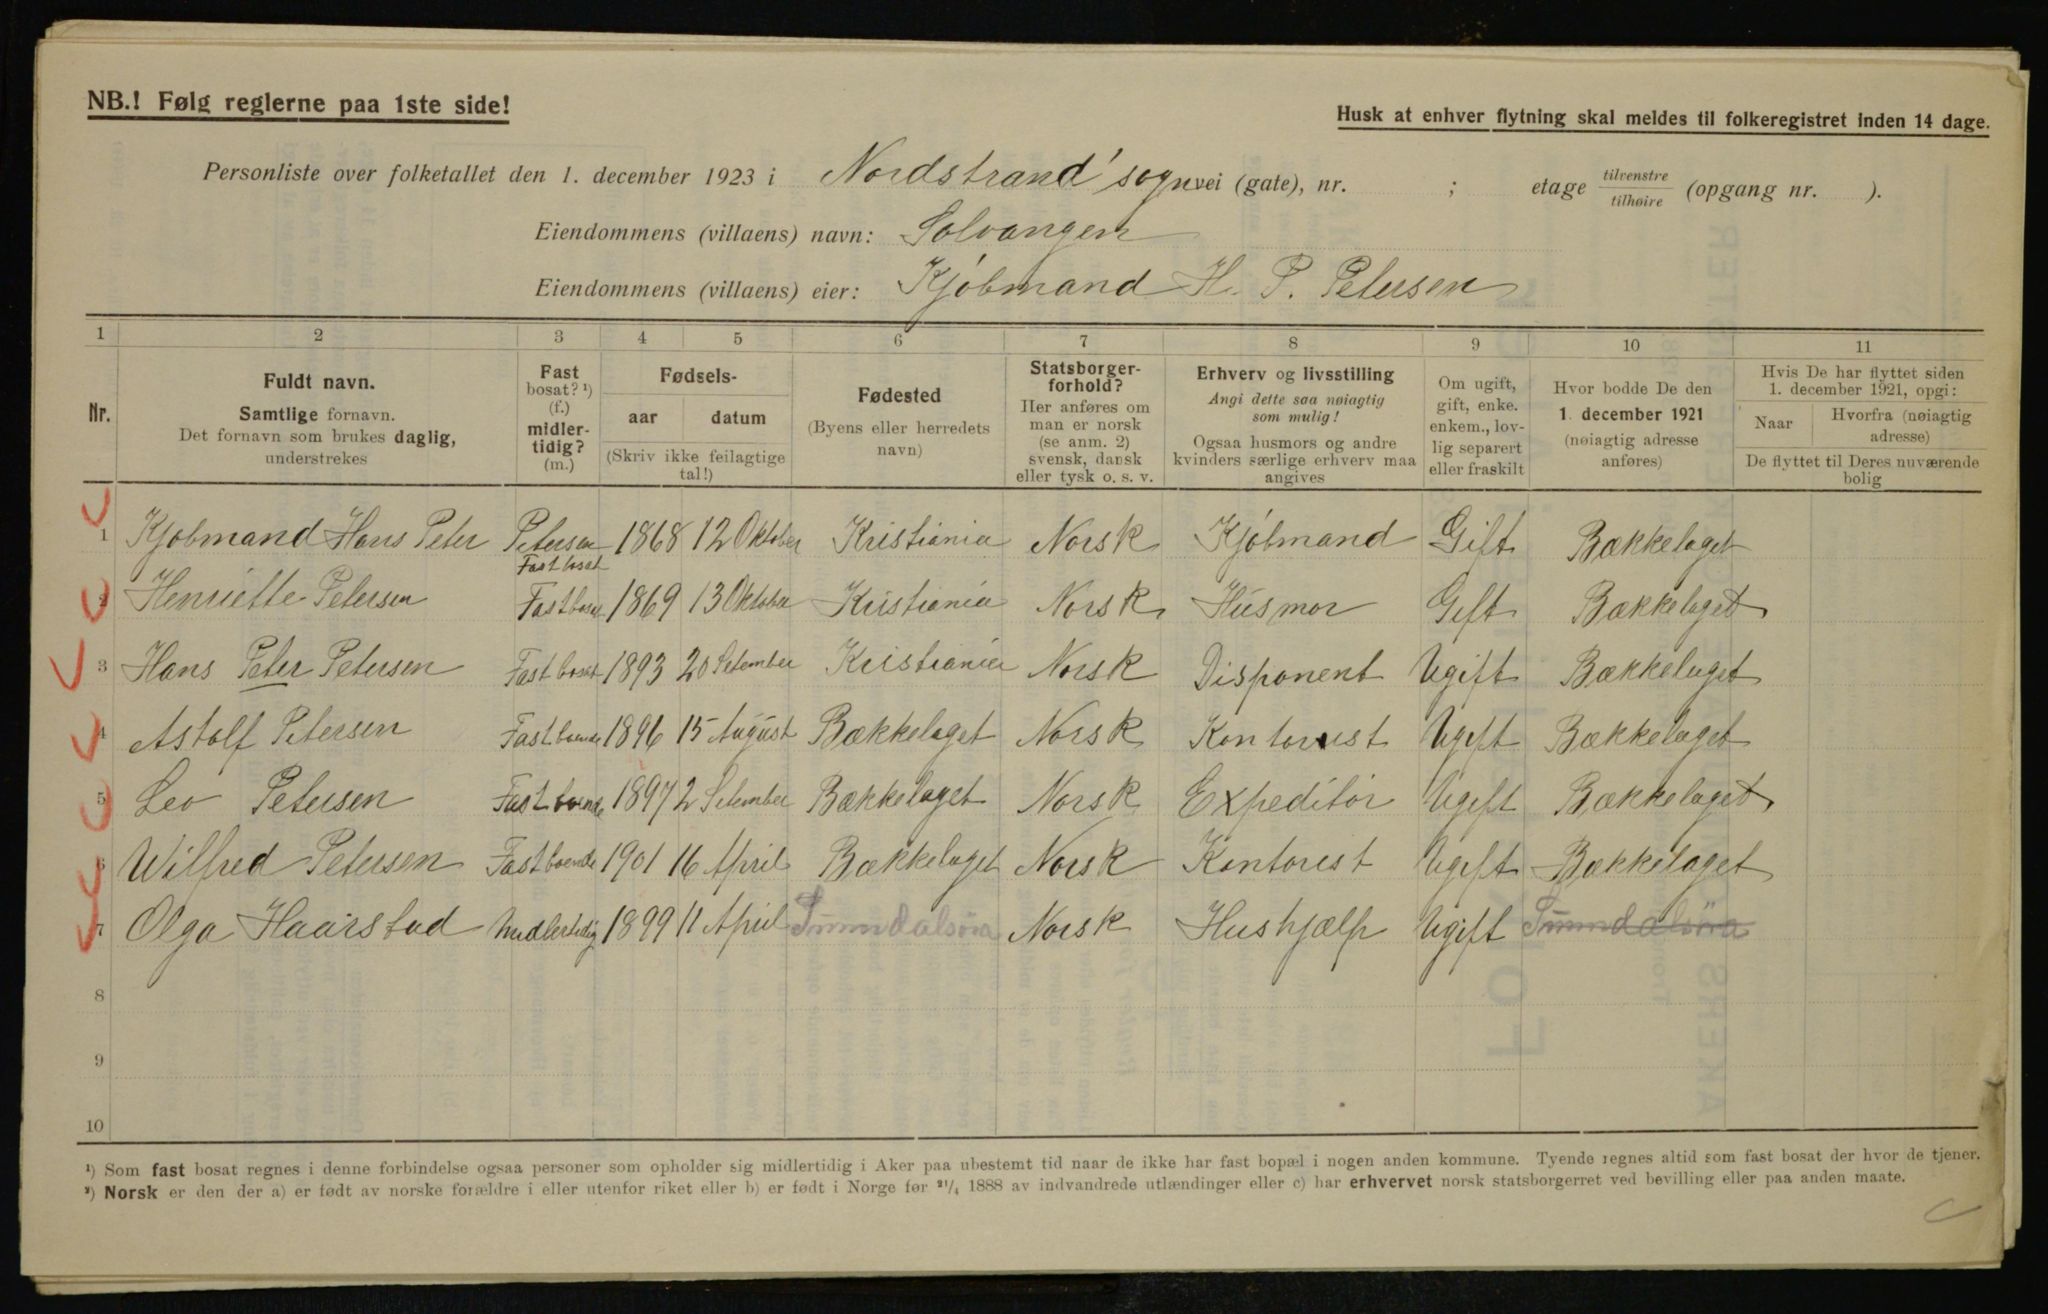 NB.! Følg reglerne paa 1ste side!
Husk at enhver flytning skal meldes til folkeregistret inden 14 dage.
Personliste over folketallet den 1. december 1923 i Nordstrand's sogn vei (gate), nr. ; etage tilvenstre tilhøire (opgang nr. ).
Eiendommens (villaens) navn: Solvangen
Eiendommens (villaens) eier: Kjøbmand H. P. Petersen
1 2 3 4 5 6 7 8 9 10 11
Nr.
Fuldt navn.
Samtlige fornavn.
Det fornavn som brukes daglig,
understrekes
Fast
bosat? ¹)
(f.)
midler-
tidig?
(m.)
Fødsels-
aar datum
(Skriv ikke feilagtige
tal!)
Fødested
(Byens eller herredets
navn)
Statsborger-
forhold?
Her anføres om
man er norsk
(se anm. 2)
svensk, dansk
eller tysk o. s. v.
Erhverv og livsstilling
Angi dette saa nøiagtig
som mulig!
Ogsaa husmors og andre
kvinders særlige erhverv maa
angives
Om ugift,
gift, enke.
enkem., lov-
lig separert
eller fraskilt
Hvor bodde De den
1. december 1921
(nøiagtig adresse
anføres)
Hvis De har flyttet siden
1. december 1921, opgi:
Naar Hvorfra (nøiagtig
adresse)
De flyttet til Deres nuværende
bolig
1 Kjøbmand Hans Peter Petersen 1868 12 Oktober Kristiania Norsk Kjøbmand Gift Bækkelaget
Fast bosat
2 Henriette Petersen Fast bosat 1869 13 Oktober Kristiania Norsk Husmor Gift Bækkelaget
3 Hans Peter Petersen Fast bosat 1893 20 Setember Kristiania Norsk Disponent Ugift Bækkelaget
4 Astolf Petersen Fast boende 1896 15 August Bækkelaget Norsk Kontorist Ugift Bækkelaget
5 Leo Petersen Fast boende 1897 2 Setember Bækkelaget Norsk Expeditør Ugift Bækkelaget
6 Wilfred Petersen Fast boende 1901 16 April Bækkelaget Norsk Kontorist Ugift Bækkelaget
7 Olga Haarstad Midlertidig 1899 11 April Sunndalsöra Norsk Hushjælp Ugift Sunndalsöra
8
9
10
¹) Som fast bosat regnes i denne forbindelse ogsaa personer som opholder sig midlertidig i Aker paa ubestemt tid naar de ikke har fast bopæl i nogen anden kommune. Tyende regnes altid som fast bosat der hvor de tjener.
²) Norsk er den der a) er født av norske forældre i eller utenfor riket eller b) er født i Norge før ²¹/₄ 1888 av indvandrede utlændinger eller c) har erhvervet norsk statsborgerret ved bevilling eller paa anden maate.